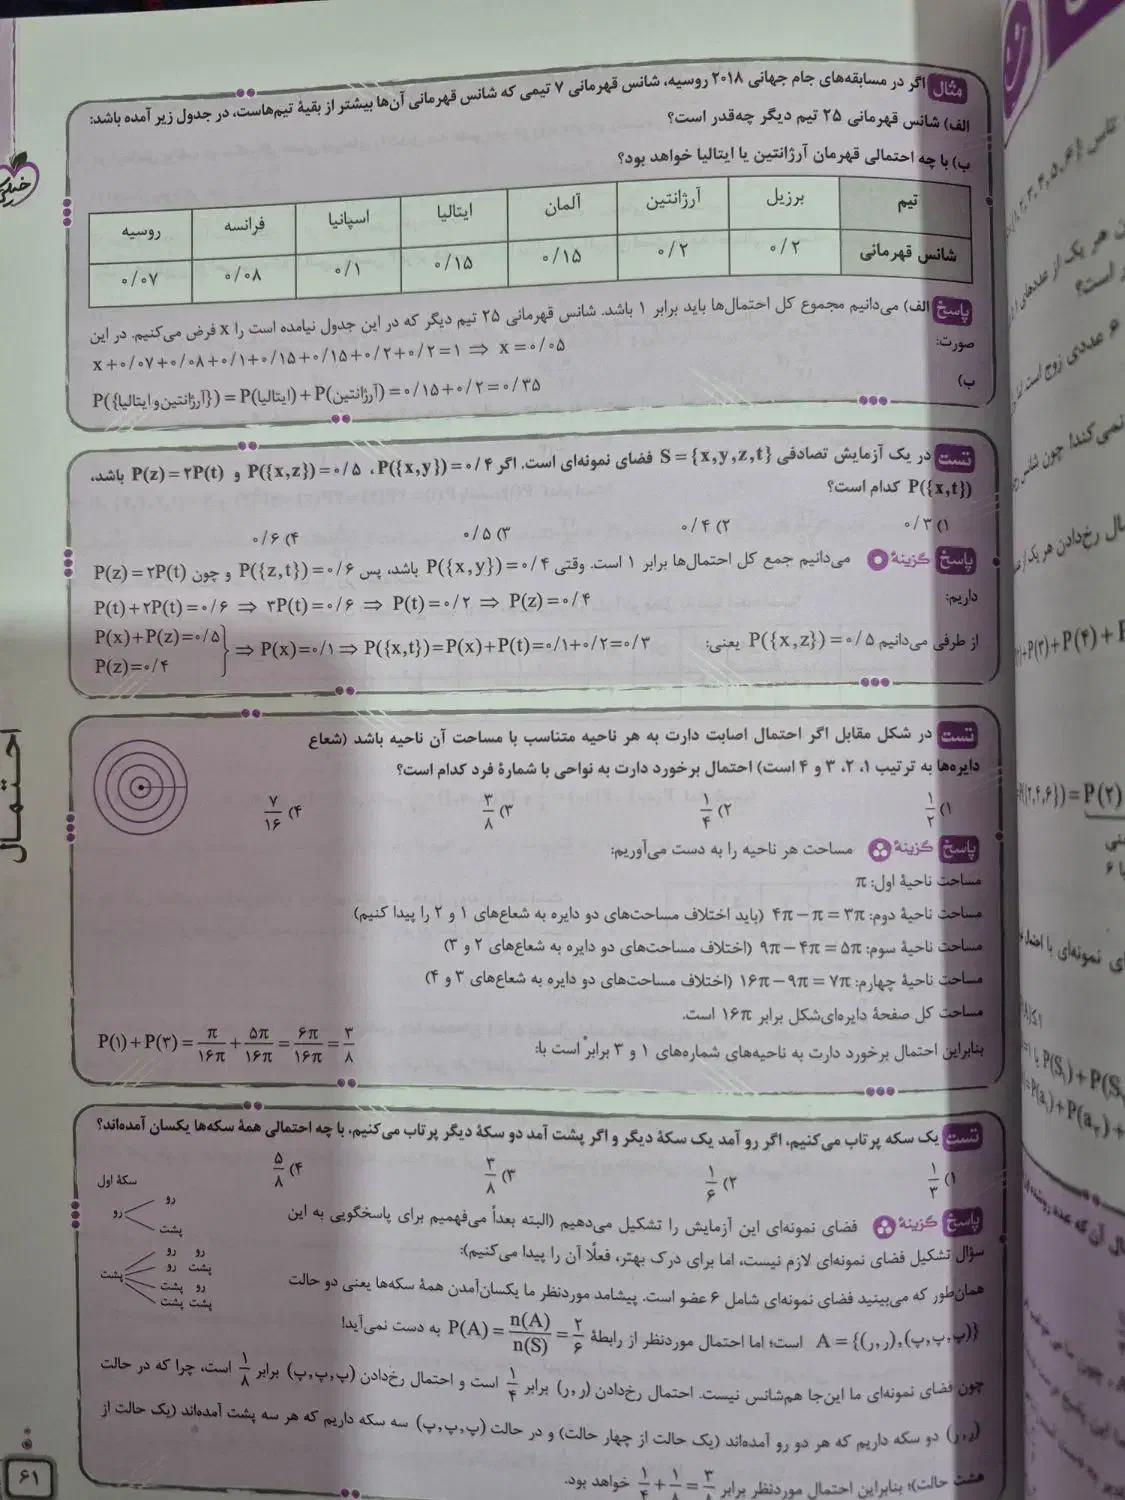 مثال اگر در مسابقه‌های جام جهانی ۲۰۱۸ روسیه، شانس قهرمانی ۷ تیمی که شانس قهرمانی آن‌ها بیشتر از بقیهٔ تیم‌هاست، در جدول زیر آمده باشد:
الف) شانس قهرمانی ۲۵ تیم دیگر چه‌قدر است؟
ب) با چه احتمالی قهرمان آرژانتین یا ایتالیا خواهد بود؟
تیم برزیل آرژانتین آلمان ایتالیا اسپانیا فرانسه روسیه
شانس قهرمانی ۰/۲ ۰/۲ ۰/۱۵ ۰/۱۵ ۰/۱ ۰/۰۸ ۰/۰۷
پاسخ الف) می‌دانیم مجموع کل احتمال‌ها باید برابر ۱ باشد. شانس قهرمانی ۲۵ تیم دیگر که در این جدول نیامده است را x فرض می‌کنیم. در این
صورت: x+۰/۰۷+۰/۰۸+۰/۱+۰/۱۵+۰/۱۵+۰/۲+۰/۲=۱ ⇒ x=۰/۰۵
ب) P({آرژانتین و ایتالیا}) = P(ایتالیا) + P(آرژانتین) = ۰/۱۵+۰/۲=۰/۳۵
تست در یک آزمایش تصادفی S={x,y,z,t} فضای نمونه‌ای است. اگر P({x,y})=۰/۴، P({x,z})=۰/۵ و P(z)=۲P(t) باشد،
P({x,t}) کدام است؟
۱) ۰/۳ ۲) ۰/۴ ۳) ۰/۵ ۴) ۰/۶
پاسخ گزینهٔ می‌دانیم جمع کل احتمال‌ها برابر ۱ است. وقتی P({x,y})=۰/۴ باشد، پس P({z,t})=۰/۶ و چون P(z)=۲P(t)
داریم: P(t)+۲P(t)=۰/۶ ⇒ ۳P(t)=۰/۶ ⇒ P(t)=۰/۲ ⇒ P(z)=۰/۴
از طرفی می‌دانیم P({x,z})=۰/۵ یعنی: P(x)+P(z)=۰/۵ P(z)=۰/۴ } ⇒ P(x)=۰/۱ ⇒ P({x,t})=P(x)+P(t)=۰/۱+۰/۲=۰/۳
تست در شکل مقابل اگر احتمال اصابت دارت به هر ناحیه متناسب با مساحت آن ناحیه باشد (شعاع
دایره‌ها به ترتیب ۱، ۲، ۳ و ۴ است) احتمال برخورد دارت به نواحی با شمارهٔ فرد کدام است؟
۱) ۱/۲ ۲) ۱/۴ ۳) ۳/۸ ۴) ۷/۱۶
پاسخ گزینهٔ مساحت هر ناحیه را به دست می‌آوریم:
مساحت ناحیهٔ اول: π
مساحت ناحیهٔ دوم: ۴π−π=۳π (باید اختلاف مساحت‌های دو دایره به شعاع‌های ۱ و ۲ را پیدا کنیم)
مساحت ناحیهٔ سوم: ۹π−۴π=۵π (اختلاف مساحت‌های دو دایره به شعاع‌های ۲ و ۳)
مساحت ناحیهٔ چهارم: ۱۶π−۹π=۷π (اختلاف مساحت‌های دو دایره به شعاع‌های ۳ و ۴)
مساحت کل صفحهٔ دایره‌ای‌شکل برابر ۱۶π است.
بنابراین احتمال برخورد دارت به ناحیه‌های شماره‌های ۱ و ۳ برابر است با: P(۱)+P(۳)=π/۱۶π+۵π/۱۶π=۶π/۱۶π=۳/۸
تست یک سکه پرتاب می‌کنیم، اگر رو آمد یک سکهٔ دیگر و اگر پشت آمد دو سکهٔ دیگر پرتاب می‌کنیم، با چه احتمالی همهٔ سکه‌ها یکسان آمده‌اند؟
۱) ۱/۳ ۲) ۱/۶ ۳) ۳/۸ ۴) ۵/۸
سکهٔ اول
رو رو
پشت
پشت رو رو
رو پشت
پشت رو
پشت پشت
پاسخ گزینهٔ فضای نمونه‌ای این آزمایش را تشکیل می‌دهیم (البته بعداً می‌فهمیم برای پاسخگویی به این
سؤال تشکیل فضای نمونه‌ای لازم نیست، اما برای درک بهتر، فعلاً آن را پیدا می‌کنیم):
همان‌طور که می‌بینید فضای نمونه‌ای شامل ۶ عضو است. پیشامد موردنظر ما یکسان‌آمدن همهٔ سکه‌ها یعنی دو حالت
A={(ر,ر),(پ,پ,پ)} است؛ اما احتمال موردنظر از رابطهٔ P(A)=n(A)/n(S)=۲/۶ به دست نمی‌آید!
چون فضای نمونه‌ای ما این‌جا هم‌شانس نیست. احتمال رخ‌دادن (ر,ر) برابر ۱/۴ است و احتمال رخ‌دادن (پ,پ,پ) برابر ۱/۸ است، چرا که در حالت
(ر,ر) دو سکه داریم که هر دو رو آمده‌اند (یک حالت از چهار حالت) و در حالت (پ,پ,پ) سه سکه داریم که هر سه پشت آمده‌اند (یک حالت از
هشت حالت)؛ بنابراین احتمال موردنظر برابر ۱/۴+۱/۸=۳/۸ خواهد بود.
احتمال
۶۱